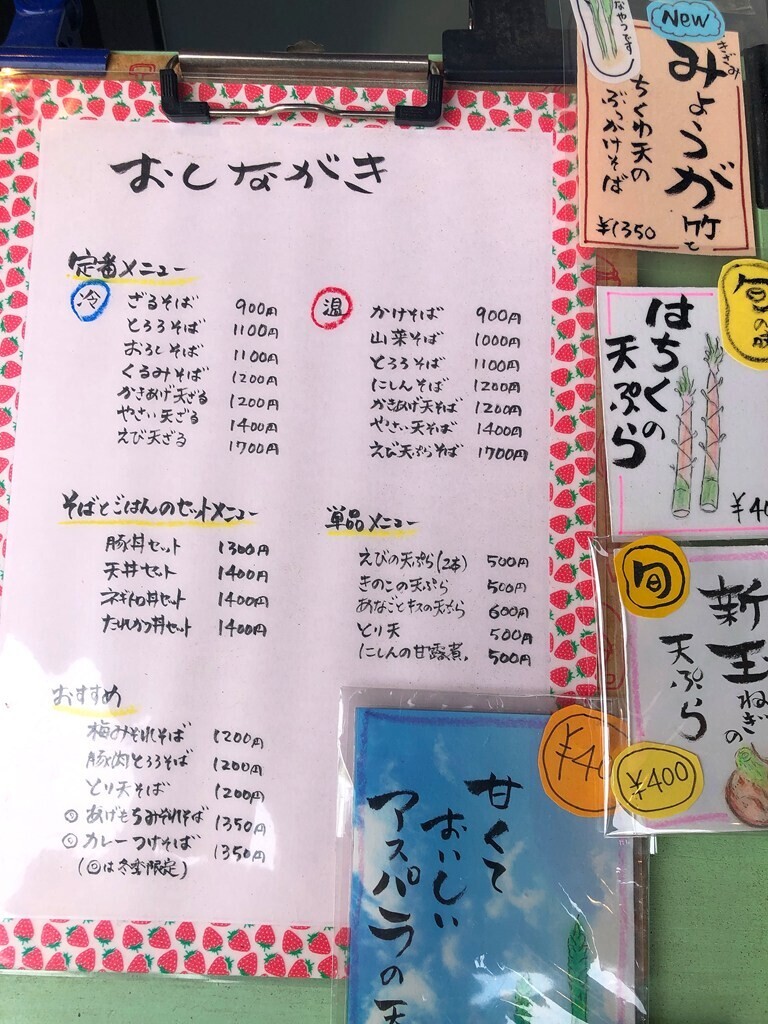 おしながき
定番メニュー
冷
ざるそば 900円
とろろそば 1100円
おろしそば 1100円
くるみそば 1200円
かきあげ天ざる 1200円
やさい天ざる 1400円
えび天ざる 1700円
温
かけそば 900円
山菜そば 1000円
とろろそば 1100円
にしんそば 1200円
かきあげ天そば 1200円
やさい天そば 1400円
えび天ぷらそば 1700円
そばとごはんのセットメニュー
豚丼セット 1300円
天丼セット 1400円
ネギトロ丼セット 1400円
たれかつ丼セット 1400円
単品メニュー
えびの天ぷら(2本) 500円
きのこの天ぷら 500円
あなごとキスの天ぷら 600円
とり天 500円
にしんの甘露煮 500円
おすすめ
梅みぞれそば 1200円
豚肉とろろそば 1200円
とり天そば 1200円
◎あげもちみぞれそば 1350円
◎カレーつけそば 1350円
(◎は冬季限定)
New
なやつです
きざみ
みょうが竹と
ちくわ天の
ぶっかけそば
¥1350
旬の味
はちくの
天ぷら
¥40
旬
新玉ねぎの
天ぷら
¥400
¥40
甘くて
おいしい
アスパラの天